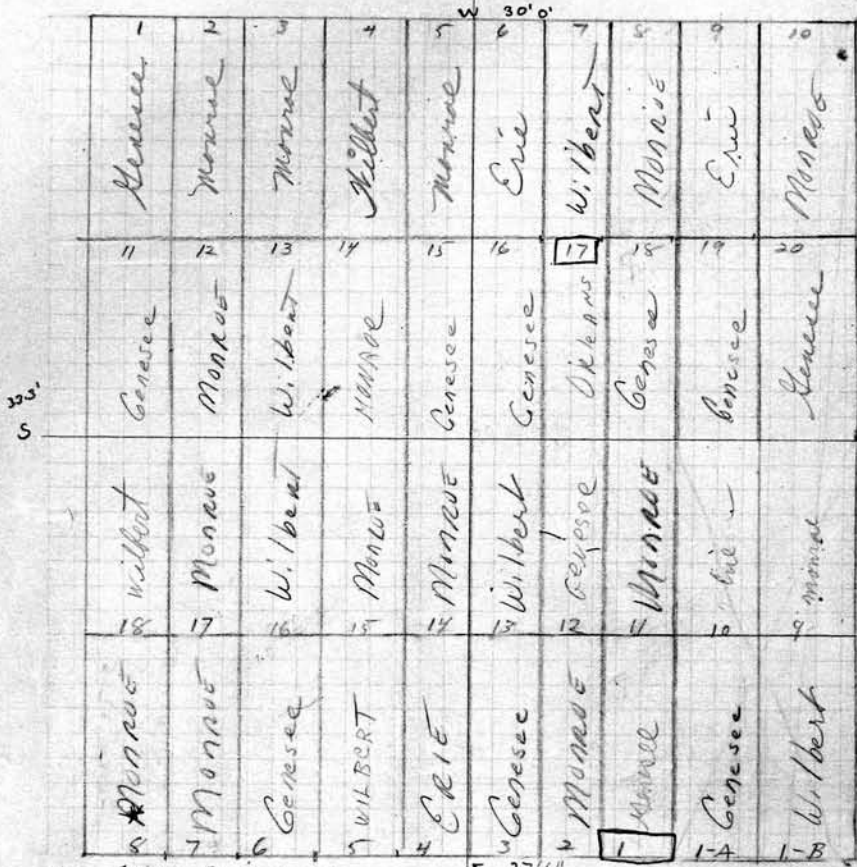 W 30'0"
1 2 3 4 5 6 7 8 9 10
Genesee Monroe Monroe Wilbert Monroe Erie Wilbert MONROE Erie MONROE
11 12 13 14 15 16 17 18 19 20
Genesee MONROE Wilbert MONROE Genesee Genesee ORLEANS Genesee Genesee Genesee
S
Wilbert MONROE Wilbert MONROE MONROE Wilbert Genesee MONROE Monroe
18 17 16 15 14 13 12 11 10 9
MONROE MONROE Genesee WILBERT ERIE Genesee MONROE Genesee Wilbert
8 7 6 5 4 3 2 1 1-A 1-B